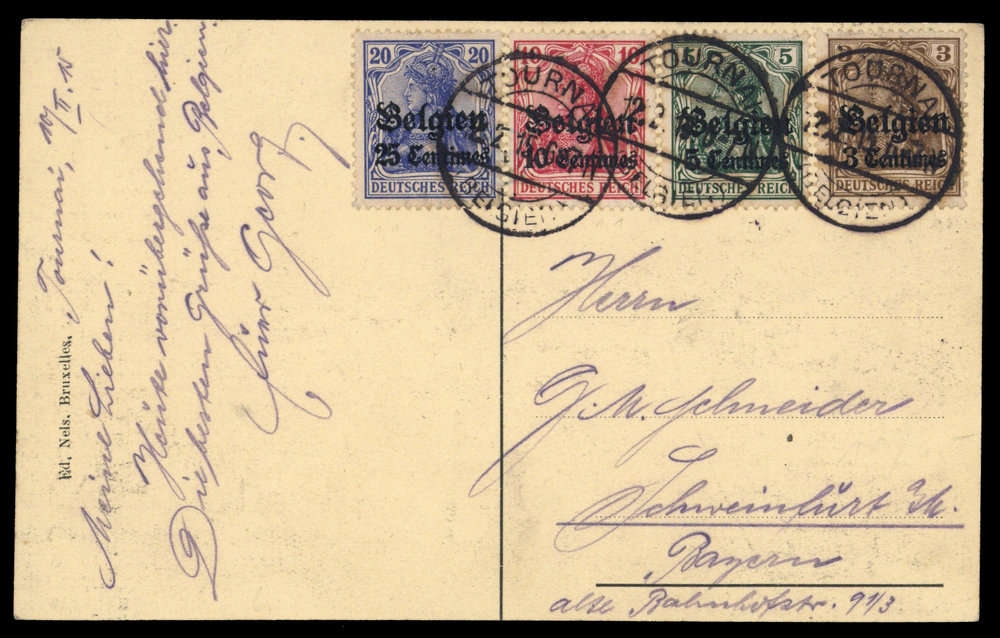 20 20
Belgien
25 Centimes
DEUTSCHES REICH
10 10
Belgien
10 Centimes
DEUTSCHES REICH
5
Belgien
5 Centimes
DEUTSCHES REICH
3 3
Belgien
3 Centimes
DEUTSCHES REICH
TOURNAI
(BELGIEN)
TOURNAI
(BELGIEN)
TOURNAI
(BELGIEN)
Ed. Nels. Bruxelles.
Tournai, II. 15
Meine Lieben!
Heute vorübergehend hier.
Die besten Grüße aus Belgien
Euer Georg.
Herrn
G. M. Schneider
Schweinfurt a/M.
Bayern
alte Bahnhofstr. 9 1/3